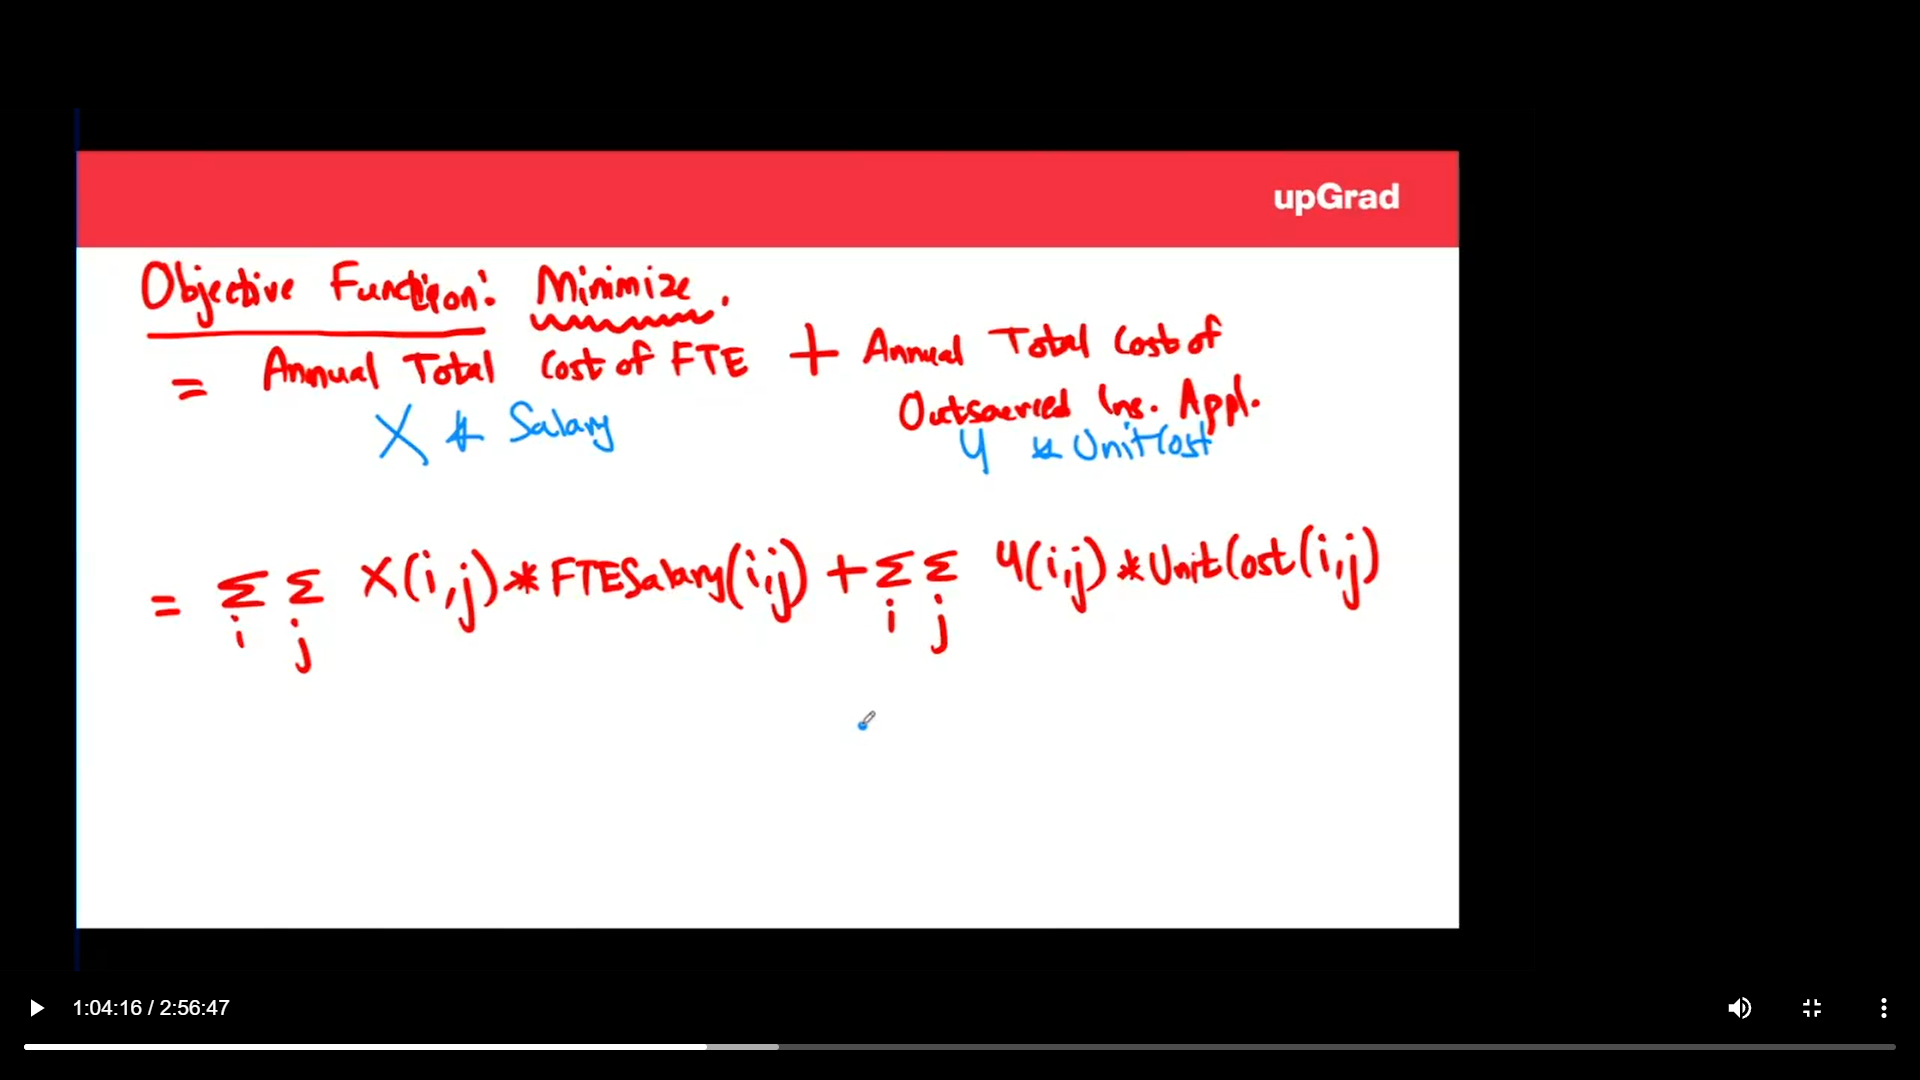 upGrad
Objective Function: Minimize.
= Annual Total Cost of FTE + Annual Total Cost of
Outsourced Ins. Appl.
X * Salary Y * UnitCost
= Σ Σ X(i,j)*FTESalary(i,j) + Σ Σ Y(i,j)*UnitCost(i,j)
i j i j
1:04:16 / 2:56:47